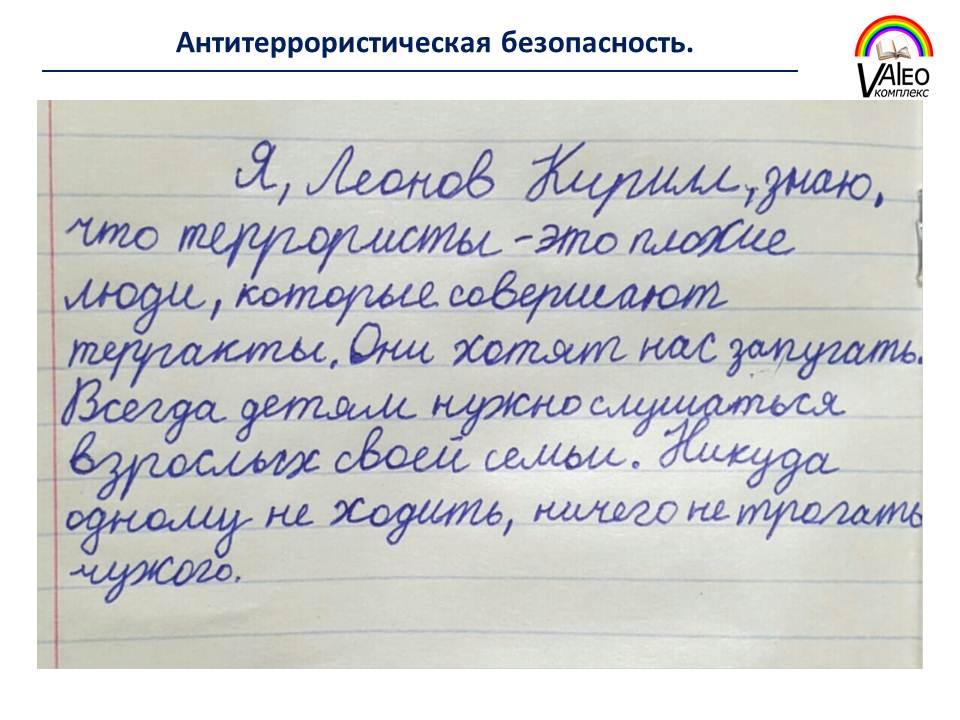 Антитеррористическая безопасность.
VAlEO
комплекс
Я, Леонов Кирилл, знаю,
что террористы - это плохие
люди, которые совершают
терракты. Они хотят нас запугать.
Всегда детям нужно слушаться
взрослых своей семьи. Никуда
одному не ходить, ничего не трогать
чужого.